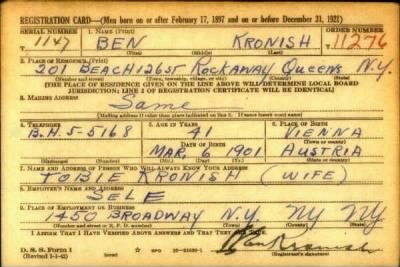 REGISTRATION CARD—(Men born on or after February 17, 1897 and on or before December 31, 1921)
SERIAL NUMBER 1. NAME (Print) ORDER NUMBER
1147 BEN KRONISH 11276
(First) (Middle) (Last)
2. PLACE OF RESIDENCE (Print)
201 BEACH 126 ST ROCKAWAY QUEENS N.Y.
(Number and street) (Town, township, village, or city) (County) (State)
[THE PLACE OF RESIDENCE GIVEN ON THE LINE ABOVE WILL DETERMINE LOCAL BOARD
JURISDICTION; LINE 2 OF REGISTRATION CERTIFICATE WILL BE IDENTICAL]
3. MAILING ADDRESS
Same
[Mailing address if other than place indicated on line 2. If same insert word same]
4. TELEPHONE 5. AGE IN YEARS 6. PLACE OF BIRTH
B.H. 5-5168 41 VIENNA
DATE OF BIRTH (Town or county)
MAR. 6 1901 AUSTRIA
(Exchange) (Number) (Mo.) (Day) (Yr.) (State or country)
7. NAME AND ADDRESS OF PERSON WHO WILL ALWAYS KNOW YOUR ADDRESS
TOBIE KRONISH (WIFE)
8. EMPLOYER'S NAME AND ADDRESS
SELF
9. PLACE OF EMPLOYMENT OR BUSINESS
1450 BROADWAY N.Y. NY NY
(Number and street or R. F. D. number) (Town) (County) (State)
I AFFIRM THAT I HAVE VERIFIED ABOVE ANSWERS AND THAT THEY ARE TRUE.
D. S. S. Form 1
(Revised 1-1-42) (over) Ben Kronish